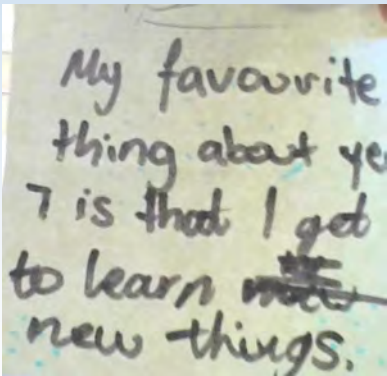 My favourite
thing about ye
7 is that I get
to learn
new things.